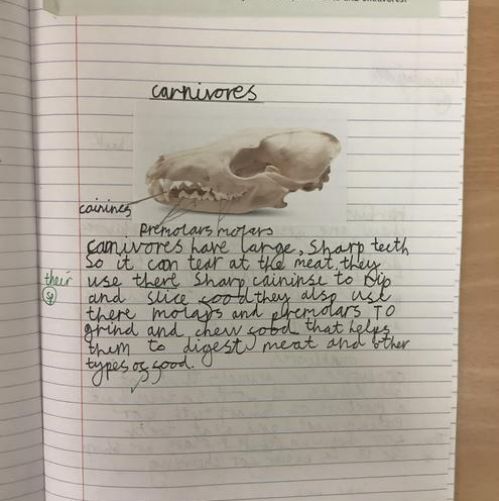 and omnivores.
carnivores
cainines
premolars molars
carnivores have large, sharp teeth
So it can tear at the meat, they
their
use there sharp caininse to rip
sp
and slice food they also use
there molars and premolars To
grind and chew food that helps
them to digest meat and other
types of food.